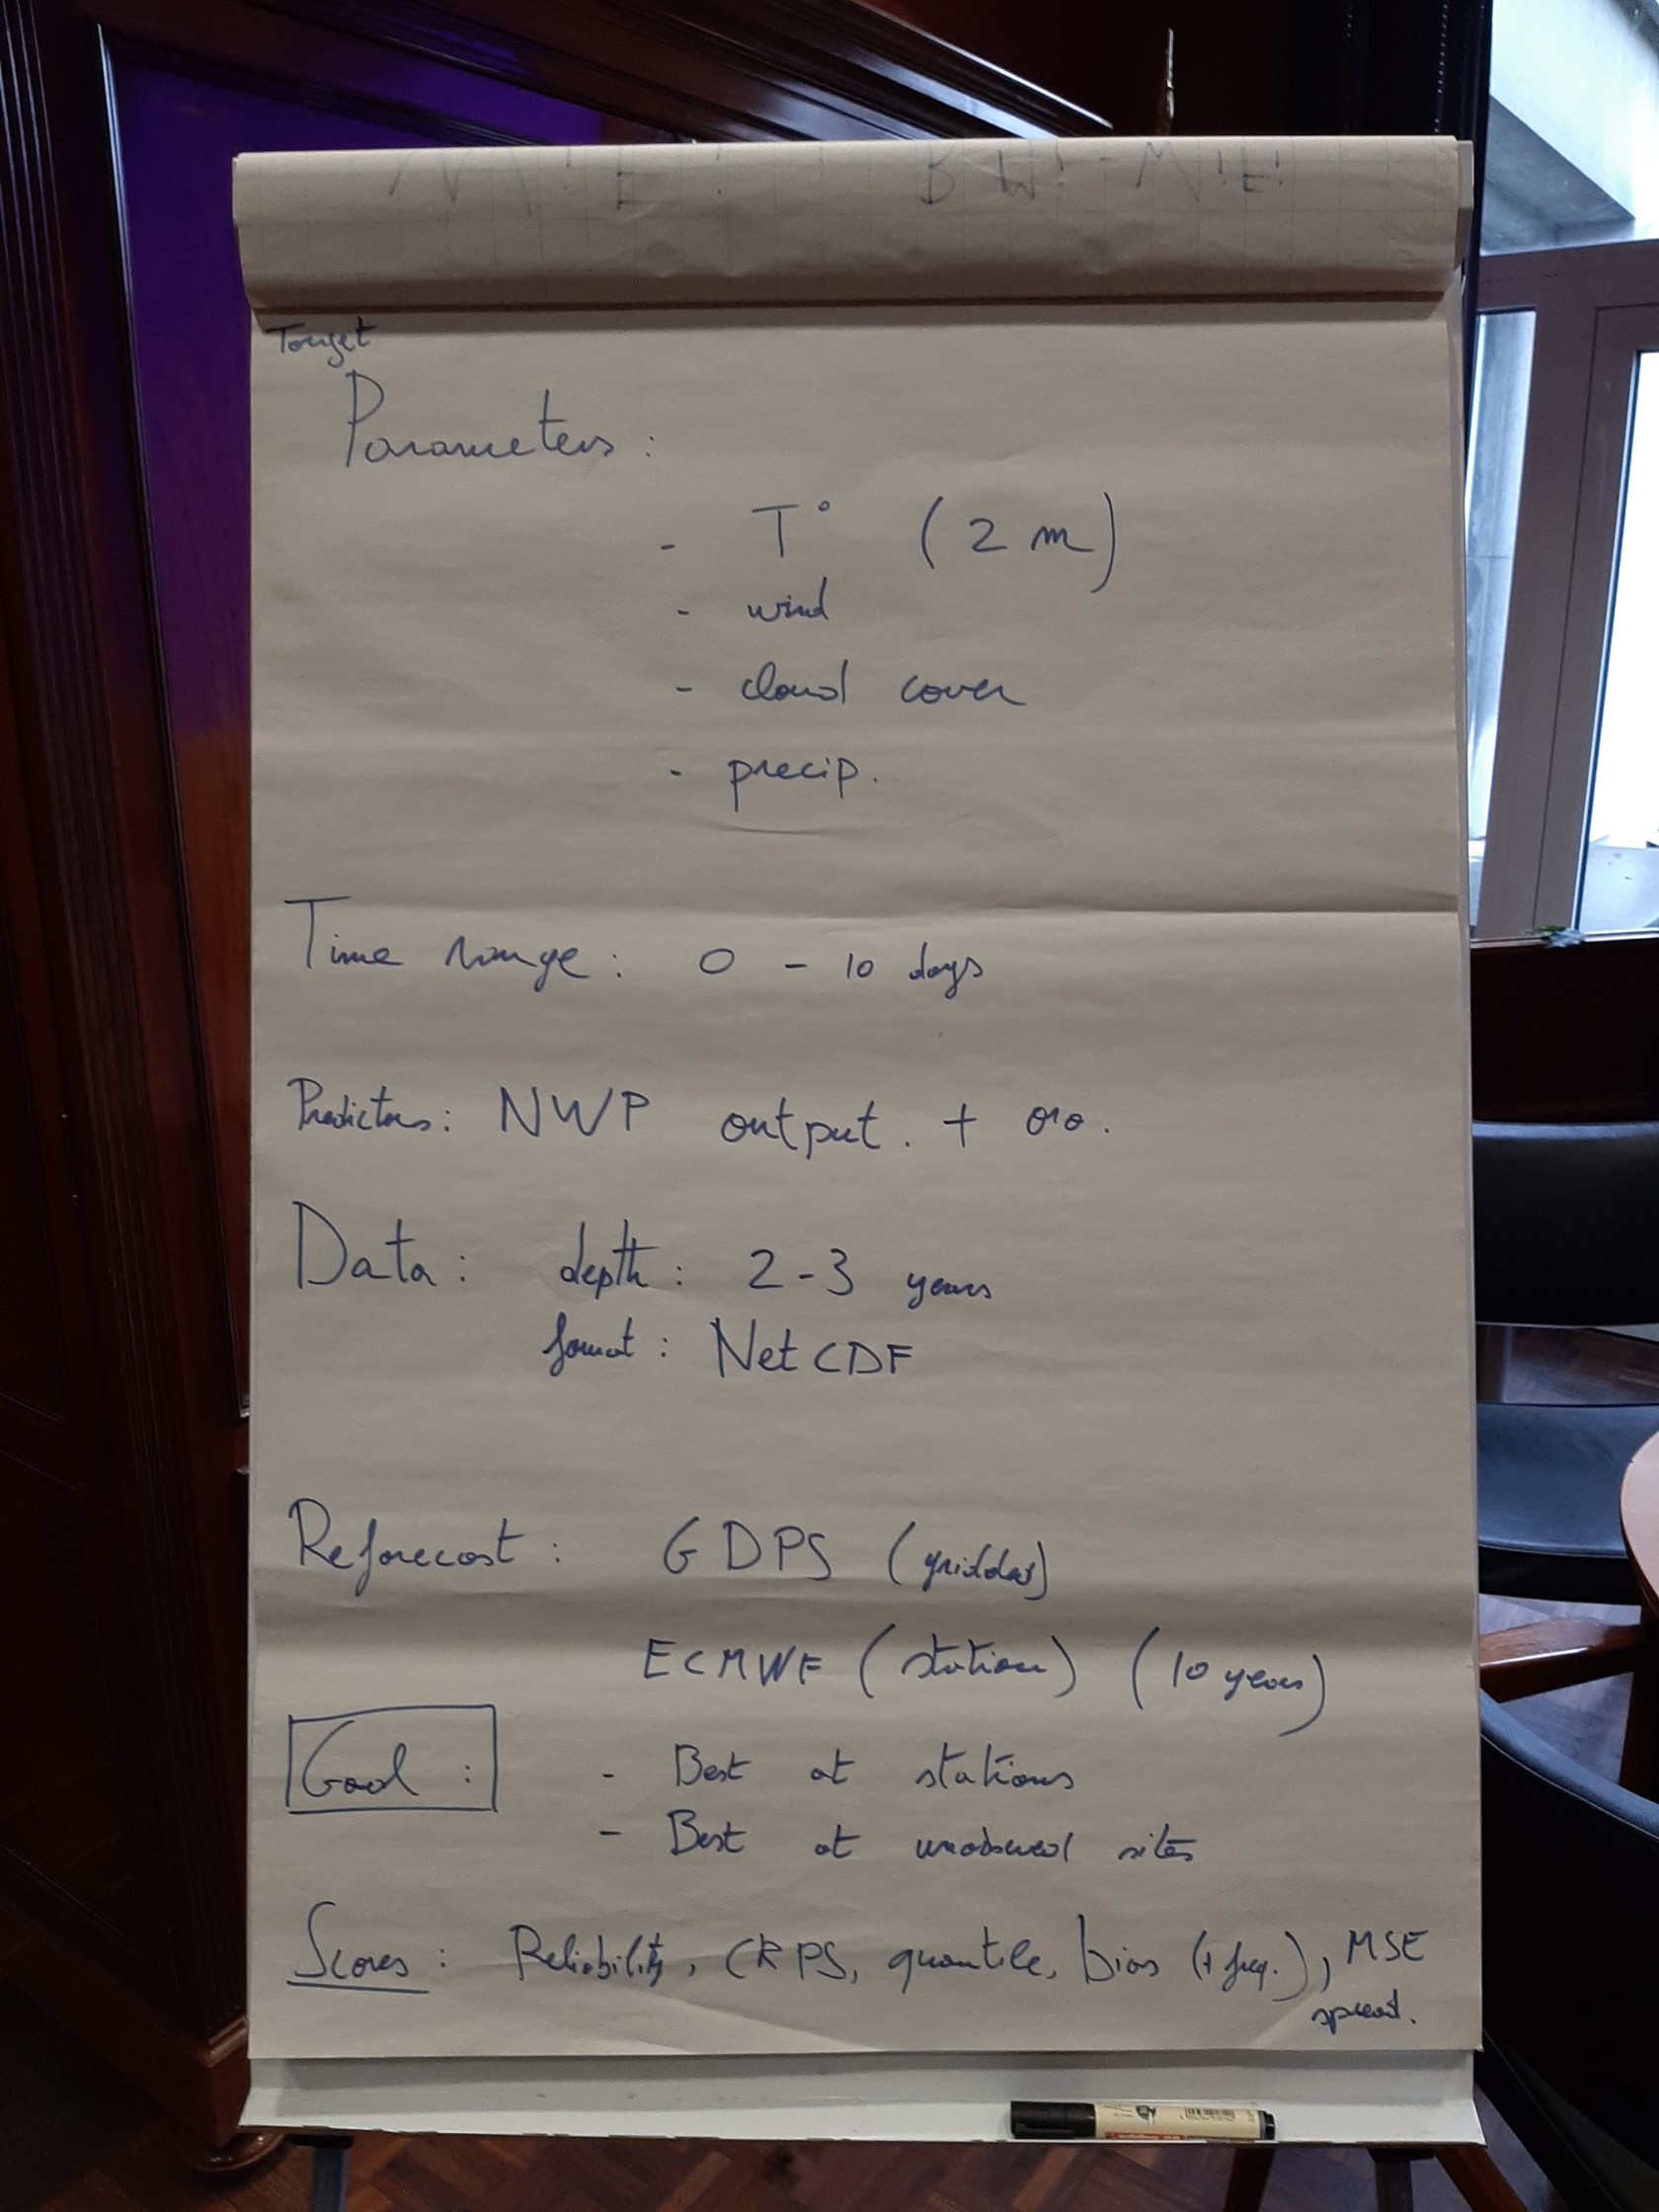 Target
Parameters :
- T° (2 m)
- wind
- cloud cover
- precip.
Time range : 0 - 10 days
Predictors : NWP output . + oro.
Data : depth : 2-3 years
format : NetCDF
Reforecast : GDPS (gridded)
ECMWF (station) (10 years)
Goal : - Best at stations
- Best at unobserved sites
Scores : Reliability, CRPS, quantile, bias (+ freq.), MSE
spread.